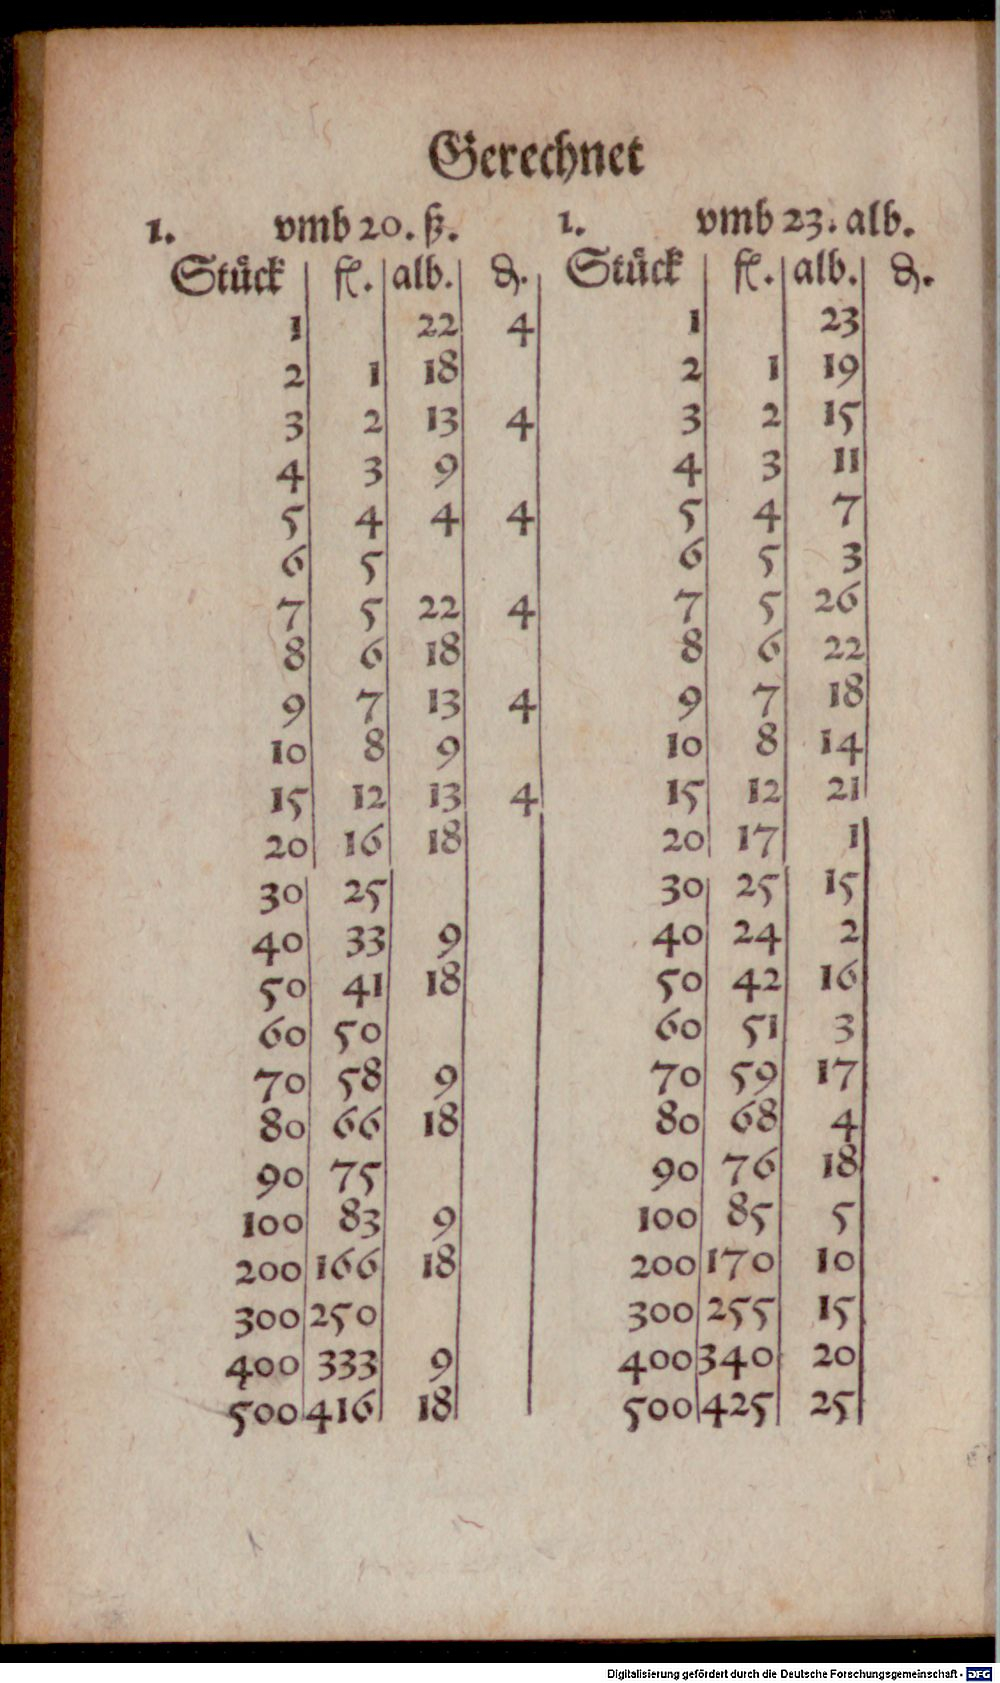 Gerechnet
1. vmb 20. ß.
Stuͤck fl. alb. ₰.
1 22 4
2 1 18
3 2 13 4
4 3 9
5 4 4 4
6 5
7 5 22 4
8 6 18
9 7 13 4
10 8 9
15 12 13 4
20 16 18
30 25
40 33 9
50 41 18
60 50
70 58 9
80 66 18
90 75
100 83 9
200 166 18
300 250
400 333 9
500 416 18
1. vmb 23. alb.
Stuͤck fl. alb. ₰.
1 23
2 1 19
3 2 15
4 3 11
5 4 7
6 5 3
7 5 26
8 6 22
9 7 18
10 8 14
15 12 21
20 17 1
30 25 15
40 24 2
50 42 16
60 51 3
70 59 17
80 68 4
90 76 18
100 85 5
200 170 10
300 255 15
400 340 20
500 425 25
Digitalisierung gefördert durch die Deutsche Forschungsgemeinschaft - DFG